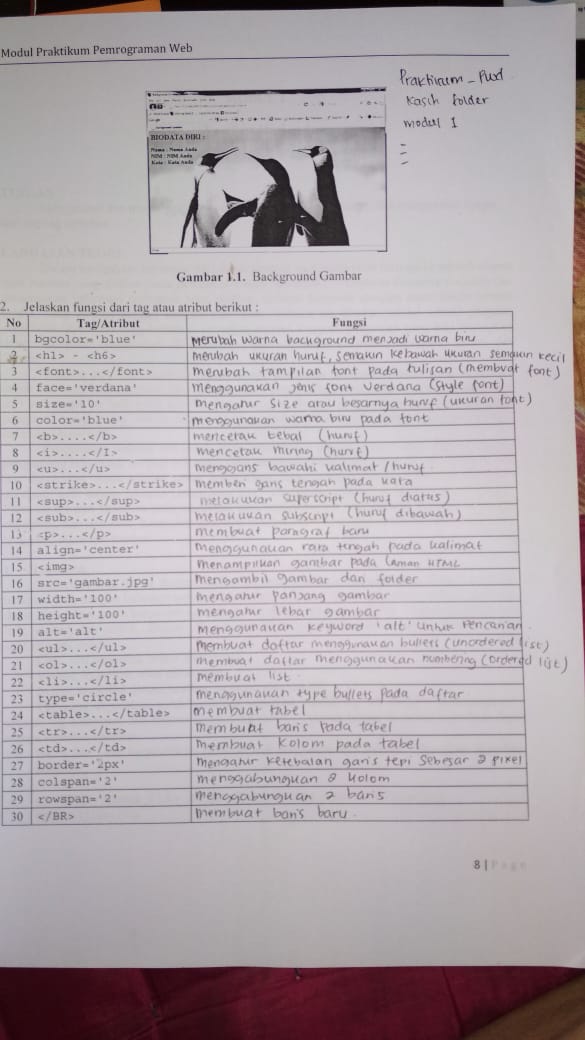 Modul Praktikum Pemrograman Web
Praktikum - Pwd
Kasih folder
modul 1
BIODATA DIRI :
Nama : Nama Anda
NIM : NIM Anda
Kota : Kota Anda
Gambar 1.1. Background Gambar
2. Jelaskan fungsi dari tag atau atribut berikut :
No Tag/Atribut Fungsi
1 bgcolor='blue' Merubah warna background menjadi warna biru
2 <h1> - <h6> Merubah ukuran huruf, semakin kebawah ukuran semakin kecil
3 <font>...</font> Merubah tampilan font pada tulisan (membuat font)
4 face='verdana' Menggunakan jenis font Verdana (style font)
5 size='10' Mengatur size atau besarnya huruf (ukuran font)
6 color='blue' Menggunakan warna biru pada font
7 <b>....</b> mencetak tebal (huruf)
8 <i>....</I> Mencetak miring (huruf)
9 <u>...</u> Menggaris bawahi kalimat / huruf
10 <strike>...</strike> Memberi garis tengah pada kata
11 <sup>...</sup> melakukan superscript (huruf diatas)
12 <sub>...</sub> melakukan subscript (huruf dibawah)
13 <p>...</p> membuat paragraf baru
14 align='center' Menggunakan rata tengah pada kalimat
15 <img> Menampilkan gambar pada laman HTML
16 src='gambar.jpg' Mengambil gambar dari folder
17 width='100' Mengatur panjang gambar
18 height='100' Mengatur lebar gambar
19 alt='alt' Menggunakan keyword 'alt' untuk pencarian.
20 <ul>...</ul> Membuat daftar menggunakan bullets (unordered list)
21 <ol>...</ol> Membuat daftar menggunakan numbering (ordered list)
22 <li>...</li> Membuat list
23 type='circle' Menggunakan type bullets pada daftar
24 <table>...</table> Membuat tabel
25 <tr>...</tr> Membuat baris pada tabel
26 <td>...</td> Membuat kolom pada tabel
27 border='2px' Mengatur ketebalan garis tepi sebesar 2 pixel
28 colspan='2' menggabungkan 2 kolom
29 rowspan='2' Menggabungkan 2 baris
30 </BR> Membuat baris baru.
8 | Page